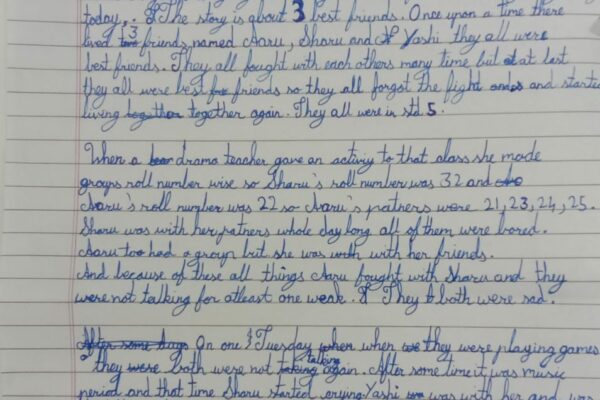 today,. The story is about 3 best friends. Once upon a time there
lived 3 friends named Aaru, Sharu and Yashi they all were
best friends. They all fought with each others many time but at last
they all were best friends so they all forgot the fight and started
living together again. They all were in std 5.
When a drama teacher gave an activiy to that class she made
groups roll number wise so Sharu's roll number was 32 and
Aaru's roll number was 22 so Aaru's patners were 21, 23, 24, 25.
Sharu was with her patners whole day long all of them were bored.
Aaru too had a group but she was with with her friends.
And because of these all things Aaru fought with Sharu and they
were not talking for atleast one week. They both were sad.
After some days On one Tuesday when when they were playing games
they were both were not talking again. After some time it was music
period and that time Sharu started crying. Yashi was with her and was